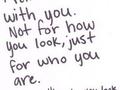 with you.
Not for how
you look, just
for who you
are.
you look